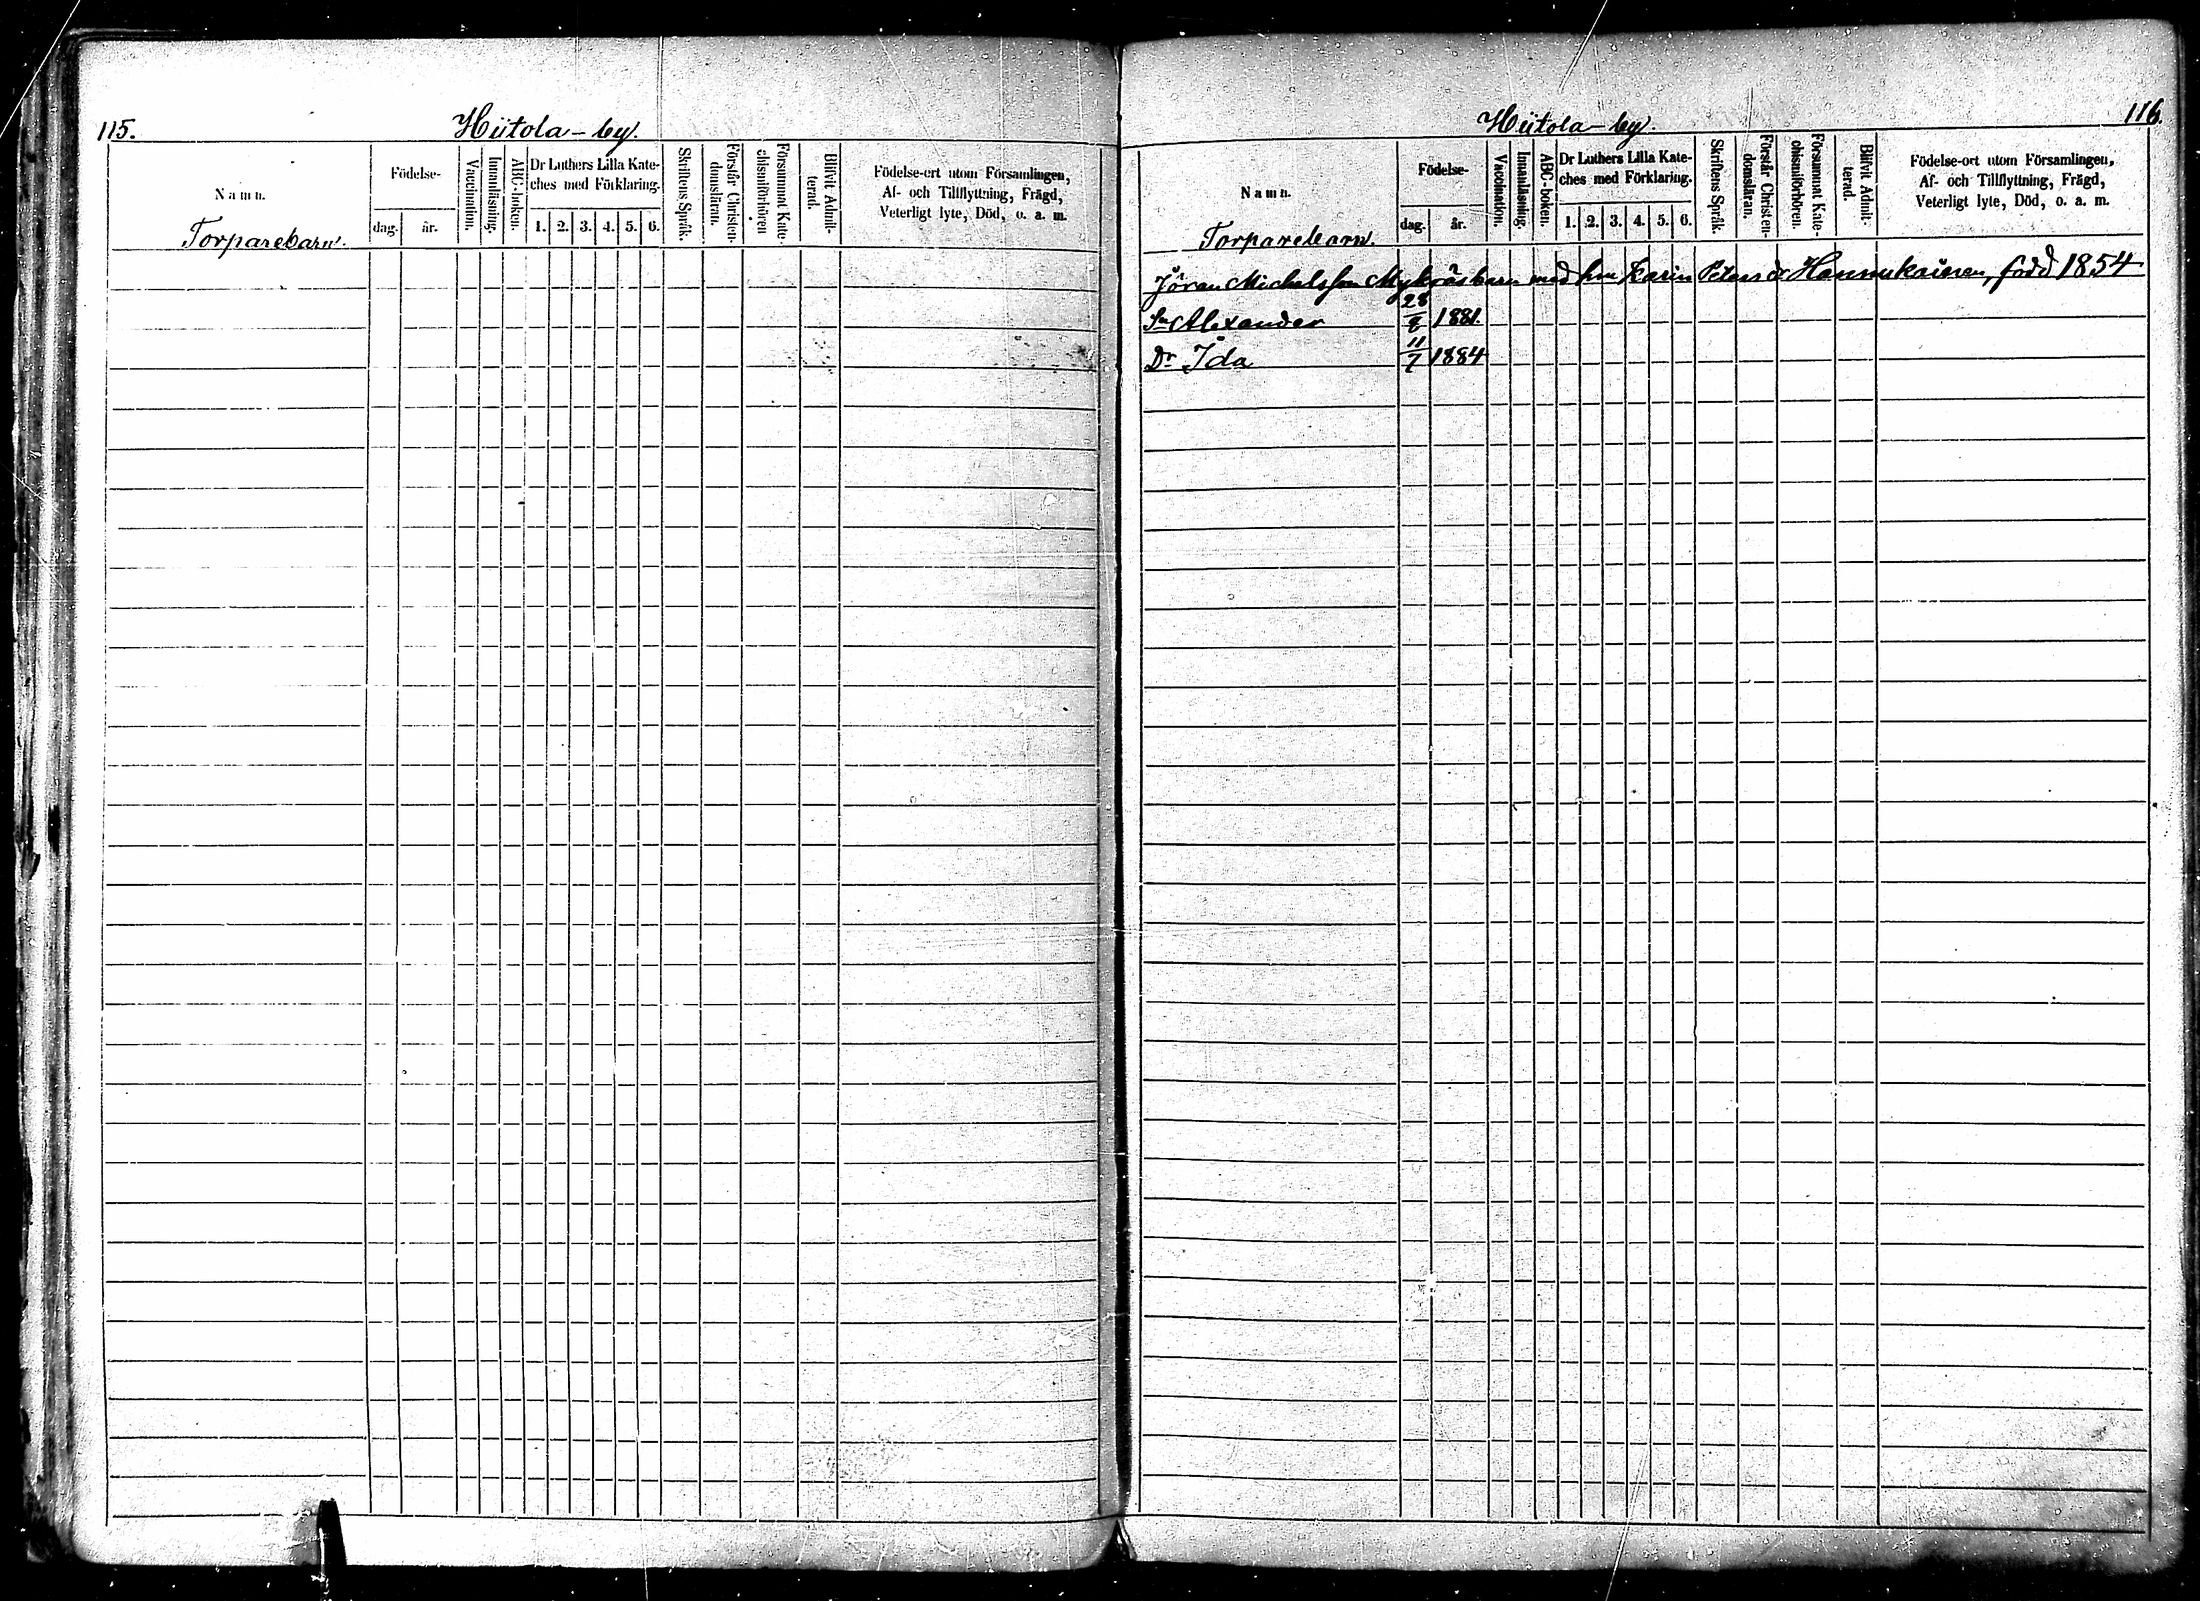 115.
Hiitola-by.
Namn.
Torparebarn.
Födelse-
dag.
år.
Vaccination.
Innanläsning.
ABC-boken.
Dr Luthers Lilla Kate-
ches med Förklaring.
1. 2. 3. 4. 5. 6.
Skriftens Språk.
Förstår Christen-
domsläran.
Försummat Kate-
chismiförhören
Blifvit Admit-
terad.
Födelse-ort utom Församlingen,
Af- och Tillflyttning, Frägd,
Veterligt lyte, Död, o. a. m.
116.
Hiitola-by.
Namn.
Torparebarn.
Födelse-
dag.
år.
Vaccination.
Innanläsning.
ABC-boken.
Dr Luthers Lilla Kate-
ches med Förklaring.
1. 2. 3. 4. 5. 6.
Skriftens Språk.
Förstår Christen-
domsläran.
Försummat Kate-
chismiförhören.
Blifvit Admit-
terad.
Födelse-ort utom Församlingen,
Af- och Tillflyttning, Frägd,
Veterligt lyte, Död, o. a. m.
Jöran Michelsson Mykräs barn med hu Karin Peters dr Hannukainen, född 1854
Sn Alexander 28/8 1881.
Dr Ida 11/7 1884